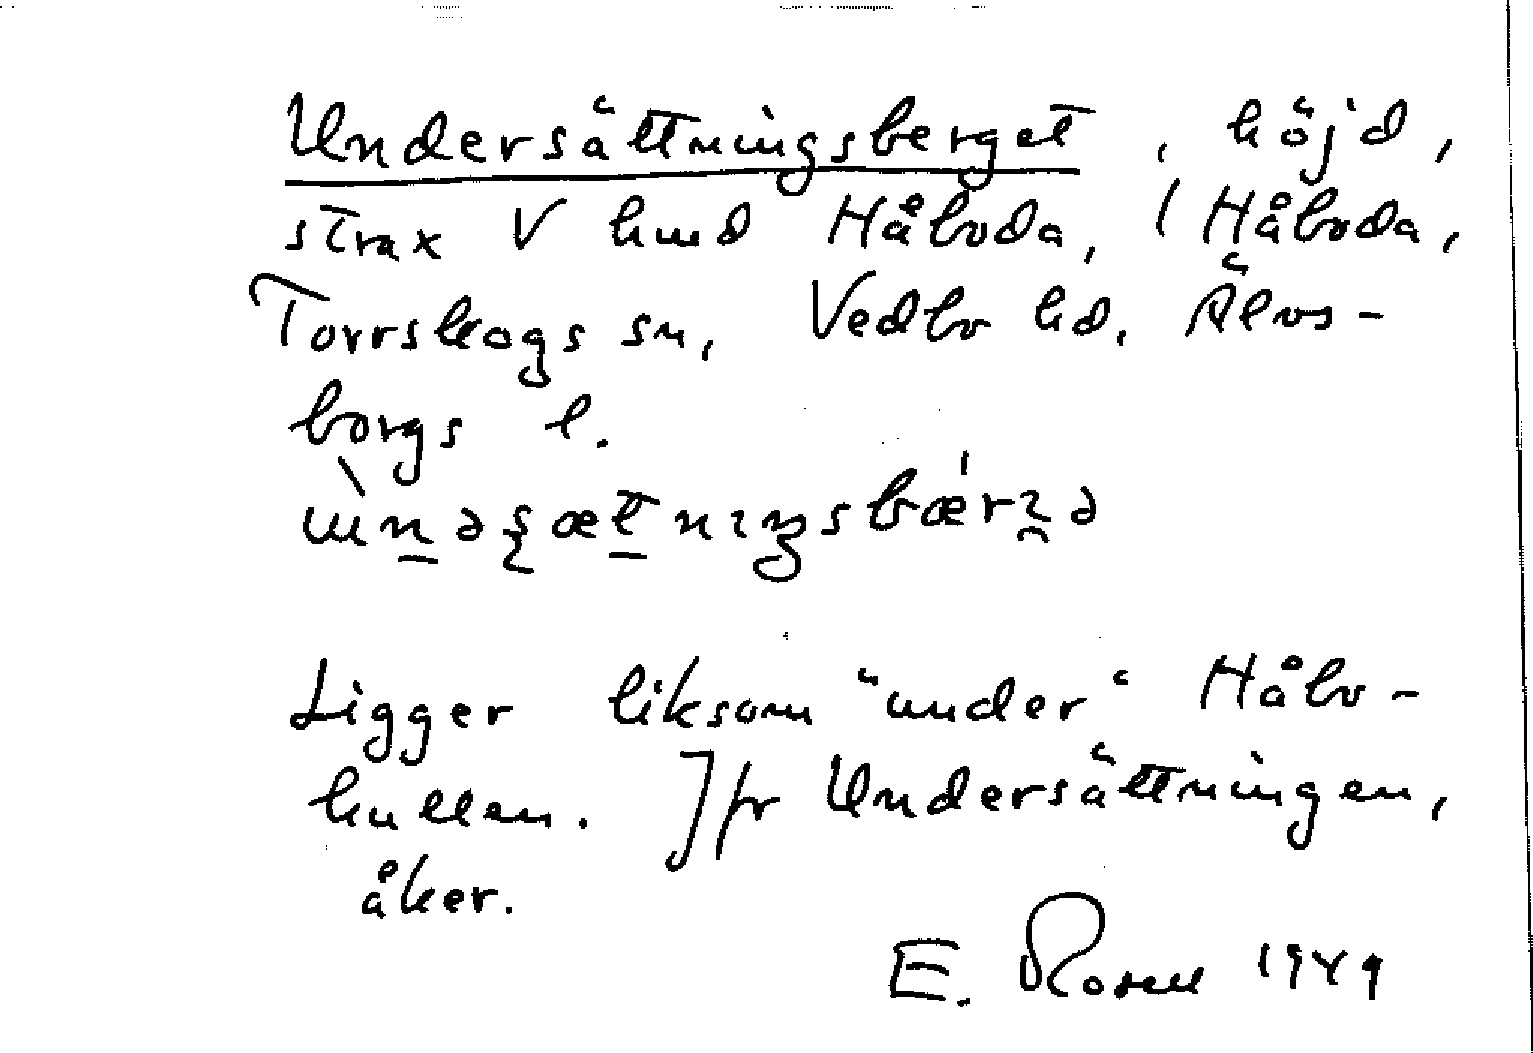 Undersättningsberget, höjd,
strax V hmd Håboda, 1 Håboda,
Torrskogs sn, Vedbo hd, Älvs-
borgs l.
ùn̲əʂæt̲nıŋsbǽrʒə
Ligger liksom "under" Håbo-
kullen. Jfr Undersättningen,
åker.
E. Rosell 1949